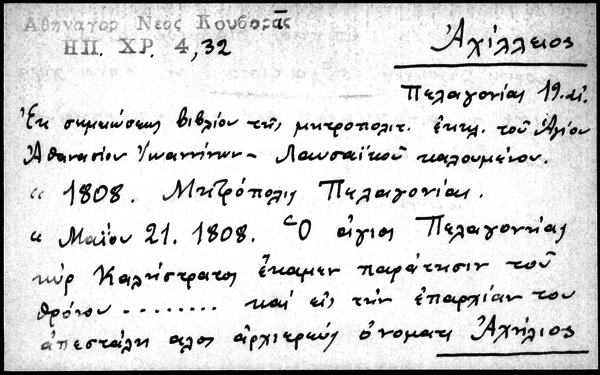 Αθηναγορ Νεος Κουβαρᾶς
ΗΠ. ΧΡ. 4,32
Ἀχίλλειος
Πελαγονίας 19.αἰ.
Ἐκ σημειώσεως βιβλίου τῆς μητροπολιτ. ἐκκλ. τοῦ Ἁγίου
Ἀθανασίου Ἰωαννίνων - Λαυσαϊκοῦ καλουμένου.
« 1808. Μητρόπολις Πελαγονίας.
« Μαΐου 21. 1808. Ὁ ἅγιος Πελαγωνίας
κύρ Καλήστρατος ἔκαμεν παράτησιν τοῦ
θρόνου ........ καί εἰς τήν ἐπαρχίαν του
ἀπεστάλη αλος ἀρχιερεύς ὀνόματι Ἀχήλιος